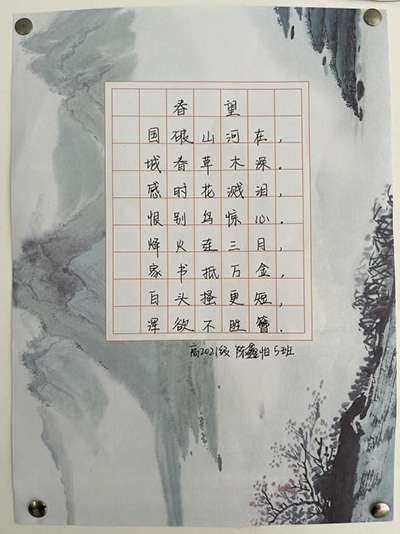 春望
国破山河在，
城春草木深.
感时花溅泪，
恨别鸟惊心.
烽火连三月，
家书抵万金，
白头搔更短，
浑欲不胜簪.
高2021级 陈鑫怡 5班